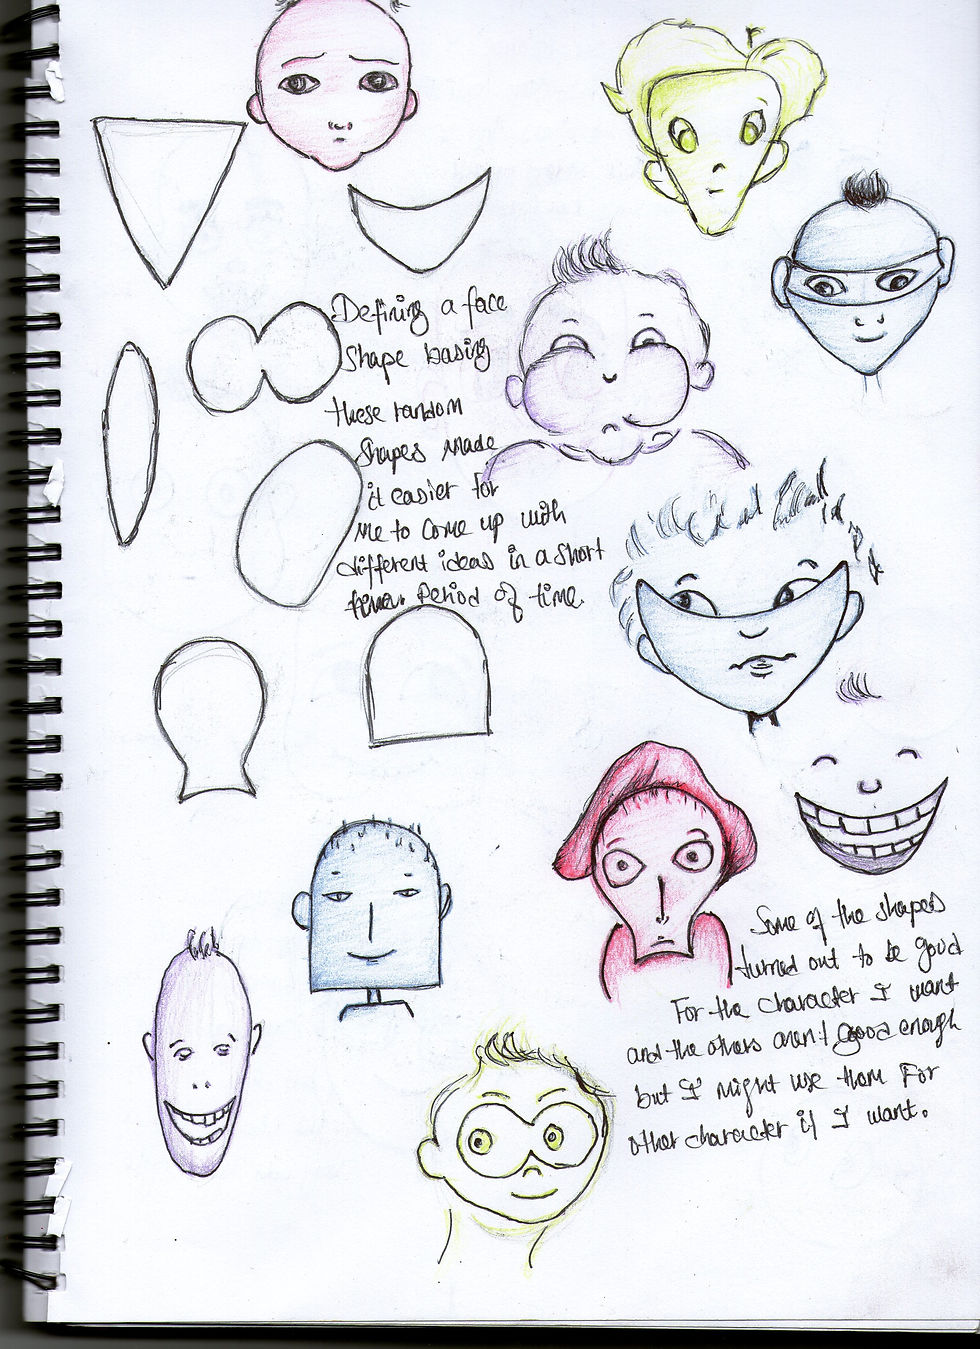 Defining a face
Shape basing
these random
Shapes made
it easier for
me to come up with
different ideas in a short
time. Period of time.
Some of the shapes
turned out to be good
For the character I want
and the others aren't good enough
but I might use them For
other character if I want.